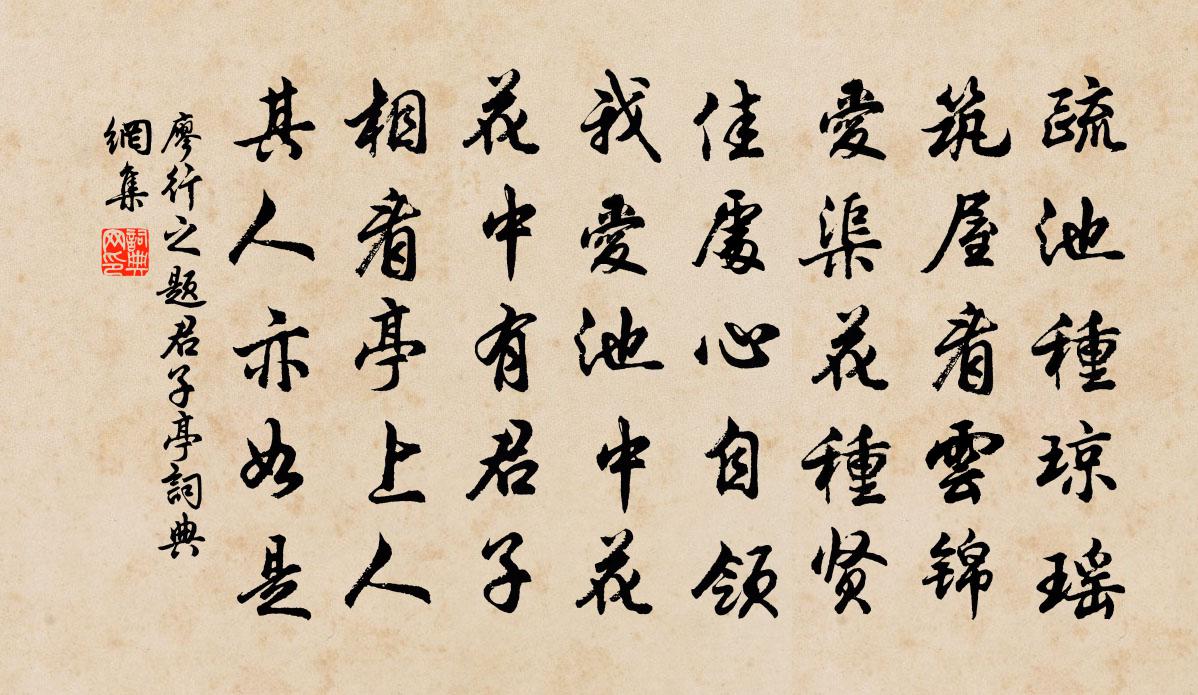 疏池種琼瑶
筑屋看雲锦
愛渠花種贤
佳處心自领
我愛池中花
花中有君子
相看亭上人
其人亦如是
廖行之题君子亭詞典
網集
詞典
网印